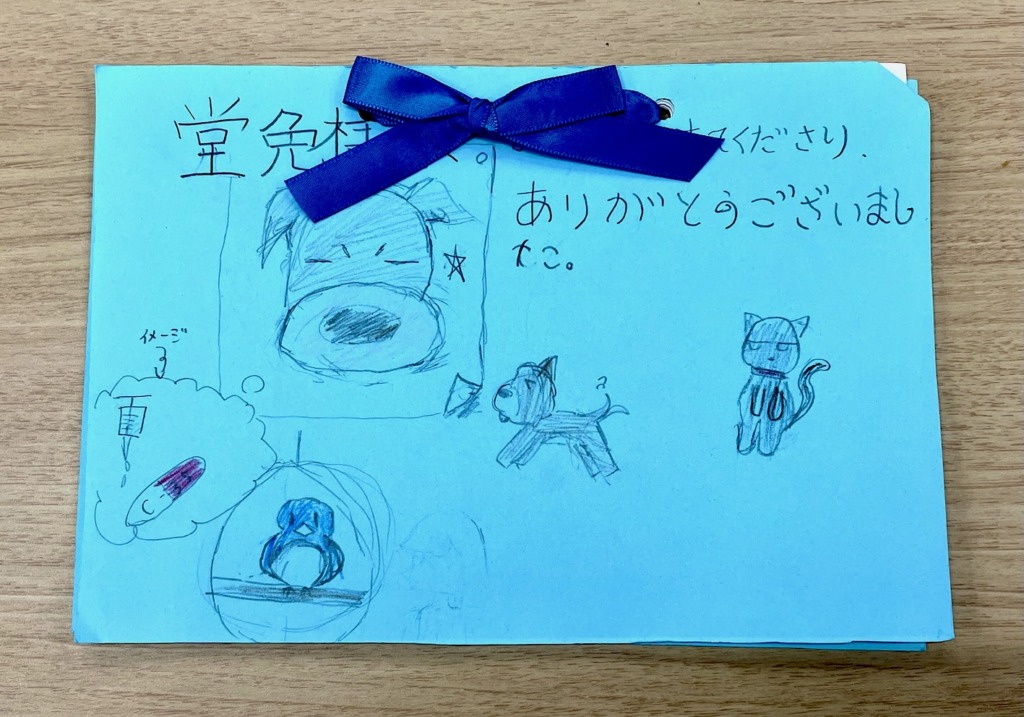 堂免
てくださり、
ありがとうございまし
た。
イメージ